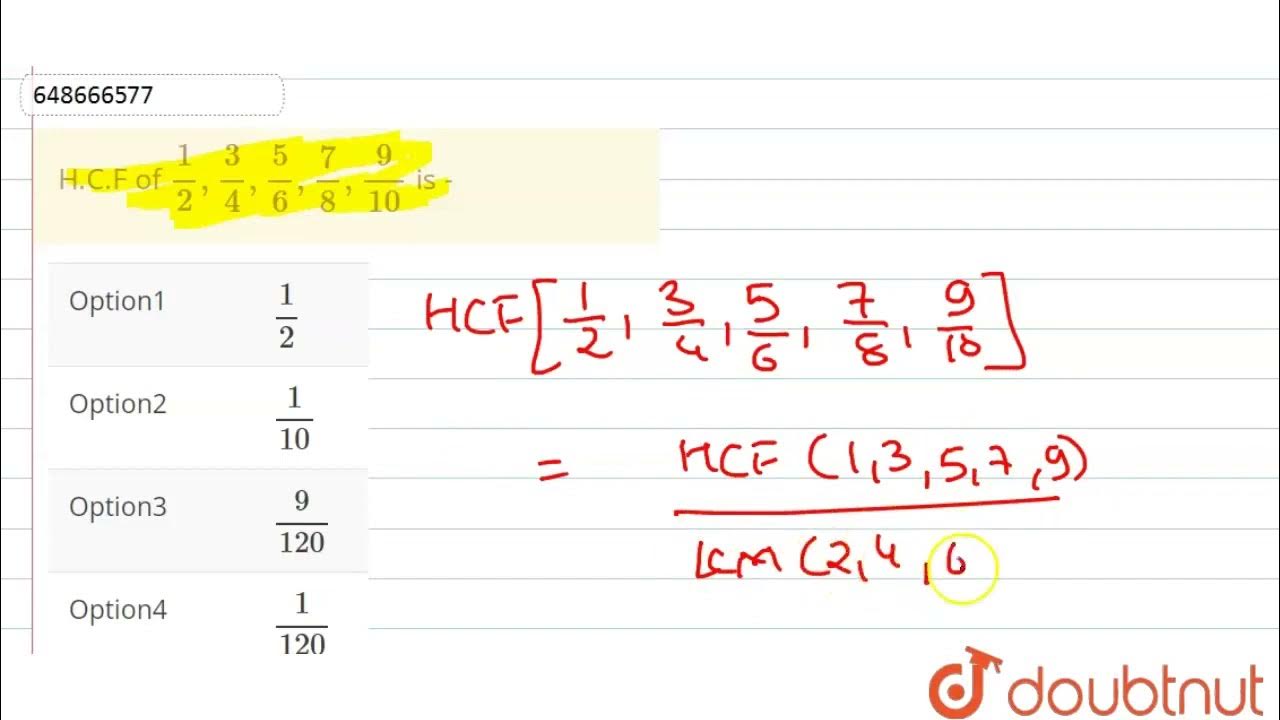 648666577
H.C.F of 1/2, 3/4, 5/6, 7/8, 9/10 is -
Option1 1/2
Option2 1/10
Option3 9/120
Option4 1/120
HCF [1/2, 3/4, 5/6, 7/8, 9/10]
= HCF (1,3,5,7,9)
LCM (2,4,6
doubtnut